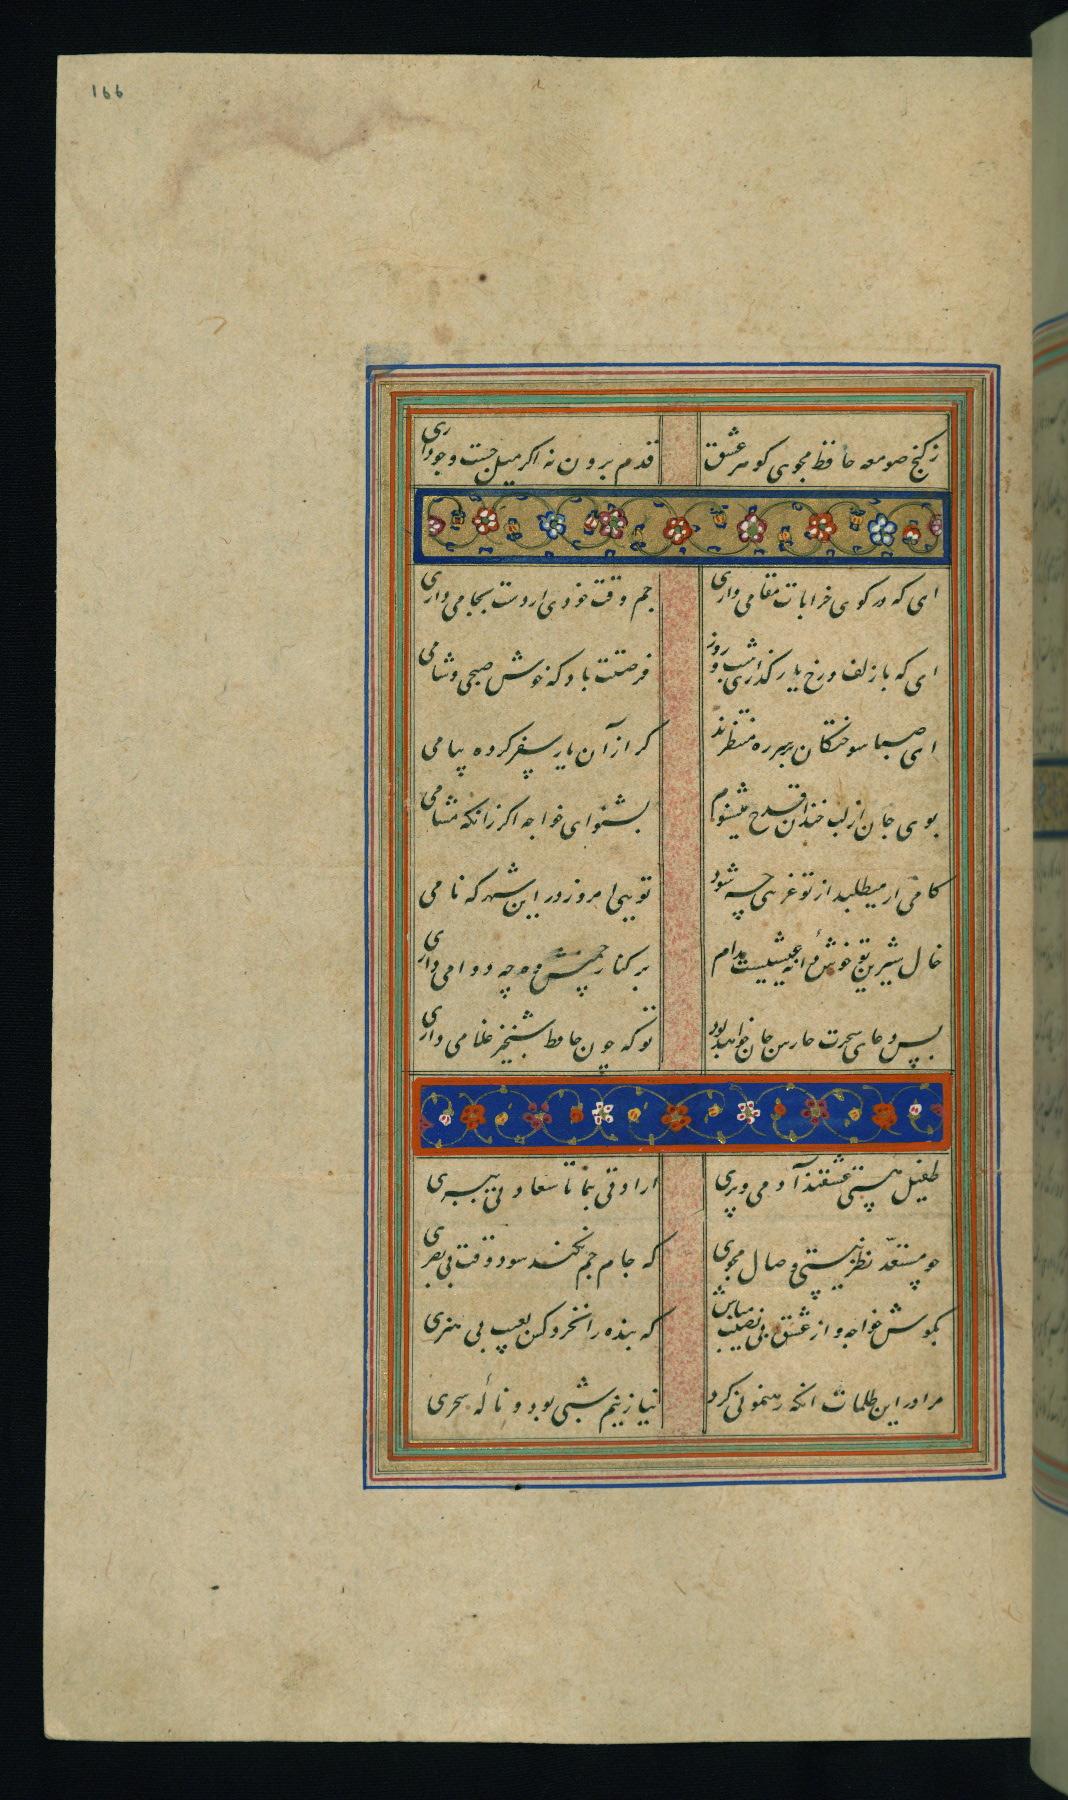 166
ز کنج صومعه حافظ مجوی گوهر عشق
قدم برون نه اگر میل جست و جو داری
ای که در کوی خرابات مقامی داری
جم وقت خودی ار دست بجامی داری
ای که با زلف و رخ یار گذاری شب و روز
فرصتت باد که خوش صبحی و شامی
ای صبا سوختگان بر سر ره منتظرند
گر از آن یار سفر کرده پیامی
بوی جان از لب خندان قدح میشنوم
بشنو ای خواجه اگر زانکه مشامی
کامی ار میطلبد از تو غریبی چه شود
تویی امروز در این شهر که نامی
خال شیرین تو خوش دانه عیشیست مدام
بر کنار چمنش وه چه دوامی داری
بس دعای سحرت حارس جان خواهد بود
تو که چون حافظ شبخیز غلامی داری
طفیل هستی عشقند آدمی و پری
ارادتی بنما تا سعادتی ببری
چو مستعد نظر نیستی وصال مجوی
که جام جم نکند سود وقت بی بصری
بکوش خواجه و از عشق بی نصیب مباش
که بنده را نخرد کس بعیب بی هنری
مرا در این ظلمات آنکه رهنمونی کرد
نیاز نیم شبی بود و نالهٔ سحری